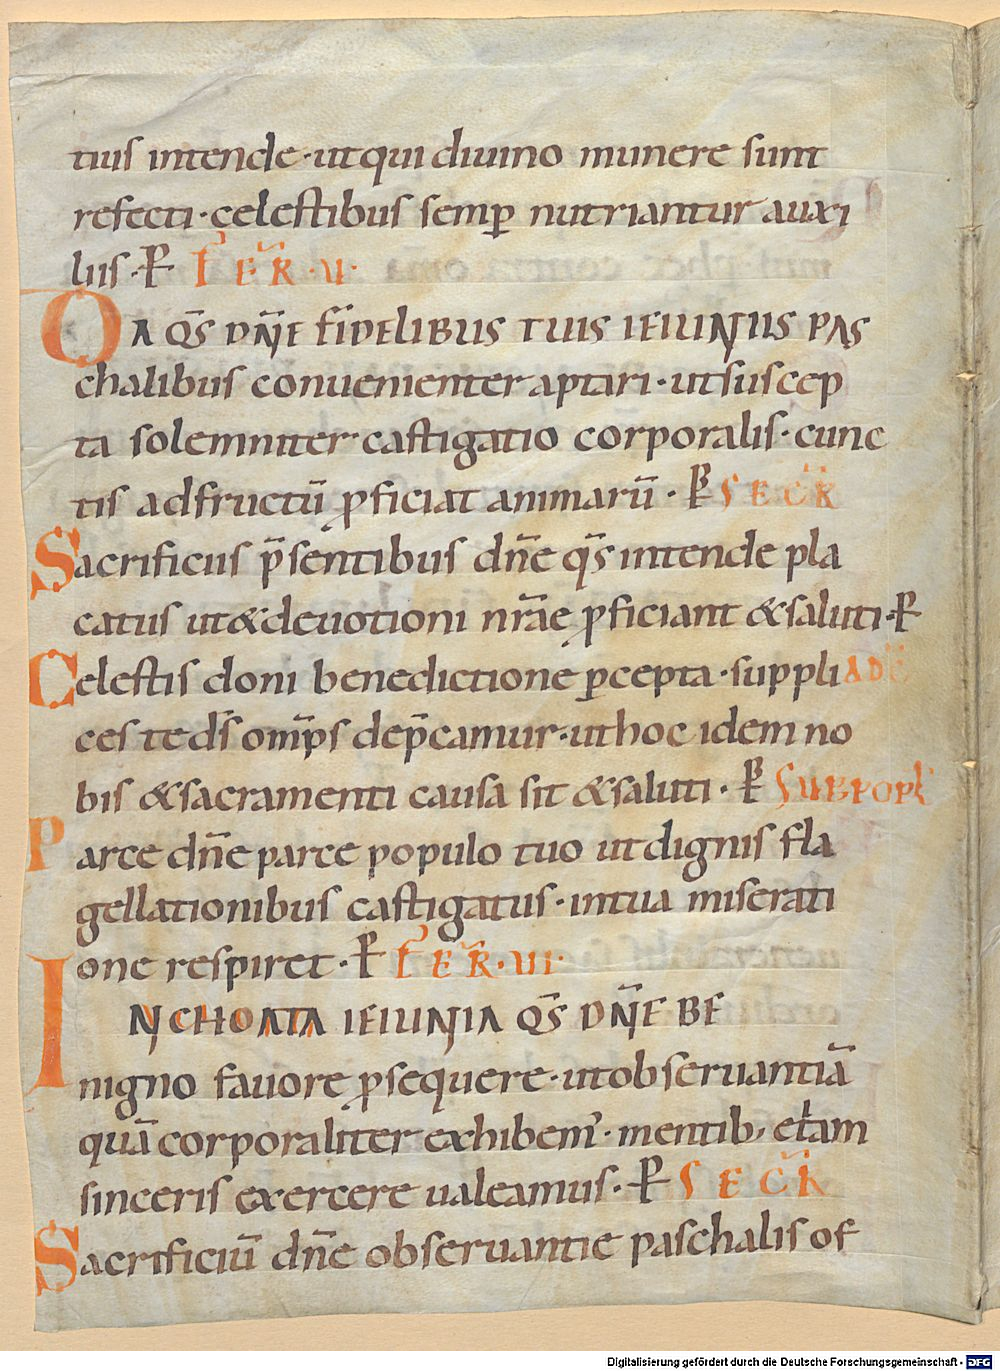 tius intende · ut qui diuino munere sunt
refecti · cęlestibus semꝑ nutriantur auxi
liis · P̄ FER̄ · U ·
DA QS̄ DN̄E FIDELIBUS TUIS IEIUNIIS PAS
chalibus conuenienter aptari · ut suscep
ta solemniter castigatio corporalis · cunc
tis ad fructū ꝓficiat animarū · P̄ SECR̄
Sacrificiis p̄sentibus dn̄e qs̄ intende pla
catus ut & deuotioni nr̄ae ꝓficiant & saluti · P̄
Celestis doni benedictione ꝑcepta · suppli AD C̄
ces te ds̄ omp̄s dep̄camur · ut hoc idem no
bis & sacramenti causa sit & saluti · P̄ SUB POPL̄
Parce dn̄e parce populo tuo ut dignis fla
gellationibus castigatus · in tua miserati
one respiret · P̄ FER̄ · UI ·
INCHOATA IEIUNIA QS̄ DN̄E BE
nigno fauore ꝓsequere · ut obseruantiā
quā corporaliter exhibem᾽ · mentib; etiam
sinceris exercere ualeamus · P̄ SECR̄
Sacrificiū dn̄e obseruantie paschalis of
Digitalisierung gefördert durch die Deutsche Forschungsgemeinschaft - DFG